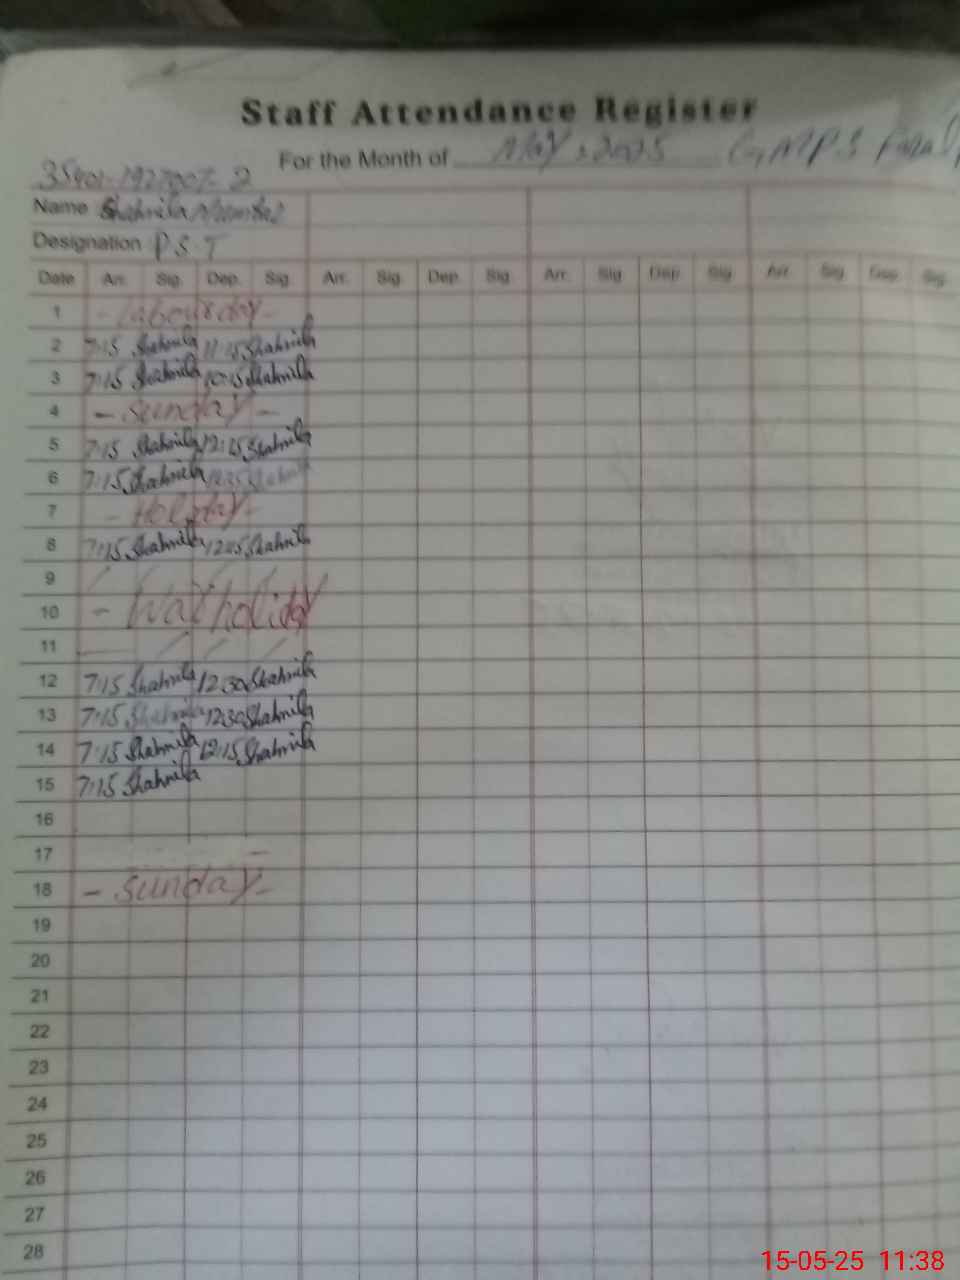 Staff Attendance Register
For the Month of May, 2025 GMPS
Name Shahnila
Designation P.S.T
Date Arr. Sig. Dep. Sig. Arr. Sig. Dep. Sig. Arr. Sig. Dep. Sig. Arr. Sig. Dep. Sig.
1 - labour day -
2 7:15 Shahnila 11:15 Shahnila
3 7:15 Shahnila 10:15 Shahnila
4 - Sunday -
5 7:15 Shahnila 12:15 Shahnila
6 7:15 Shahnila Shahnila
7 - Holiday -
8 7:15 Shahnila 12:15 Shahnila
9
10 - War holiday
11
12 7:15 Shahnila 12:30 Shahnila
13 7:15 Shahnila 12:30 Shahnila
14 7:15 Shahnila 12:15 Shahnila
15 7:15 Shahnila
16
17
18 - Sunday -
19
20
21
22
23
24
25
26
27
28
15-05-25 11:38